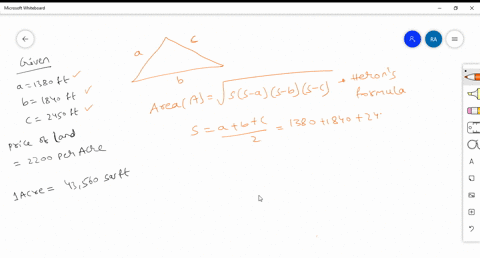 Microsoft Whiteboard
RA
Given
a = 1380 ft ✓
b = 1840 ft ✓
c = 2450 ft ✓
price of land
= 2200 per Acre
1 Acre = 43,560 sq ft
a
c
b
Area (A) = √S(S-a)(S-b)(S-c) → Heron's formula
S = a+b+c / 2 = 1380+1840+24